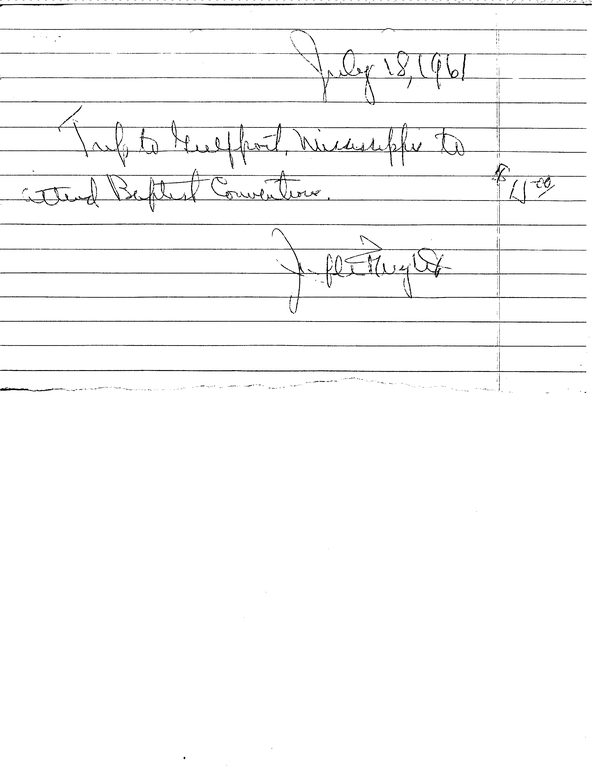 July 18, 1961
Trip to Gulfport, Mississippi to
attend Baptist Convention. $4.00